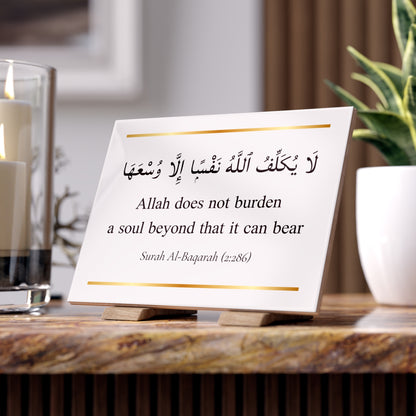 لَا يُكَلِّفُ ٱللَّهُ نَفْسًا إِلَّا وُسْعَهَا
Allah does not burden
a soul beyond that it can bear
Surah Al-Baqarah (2:286)